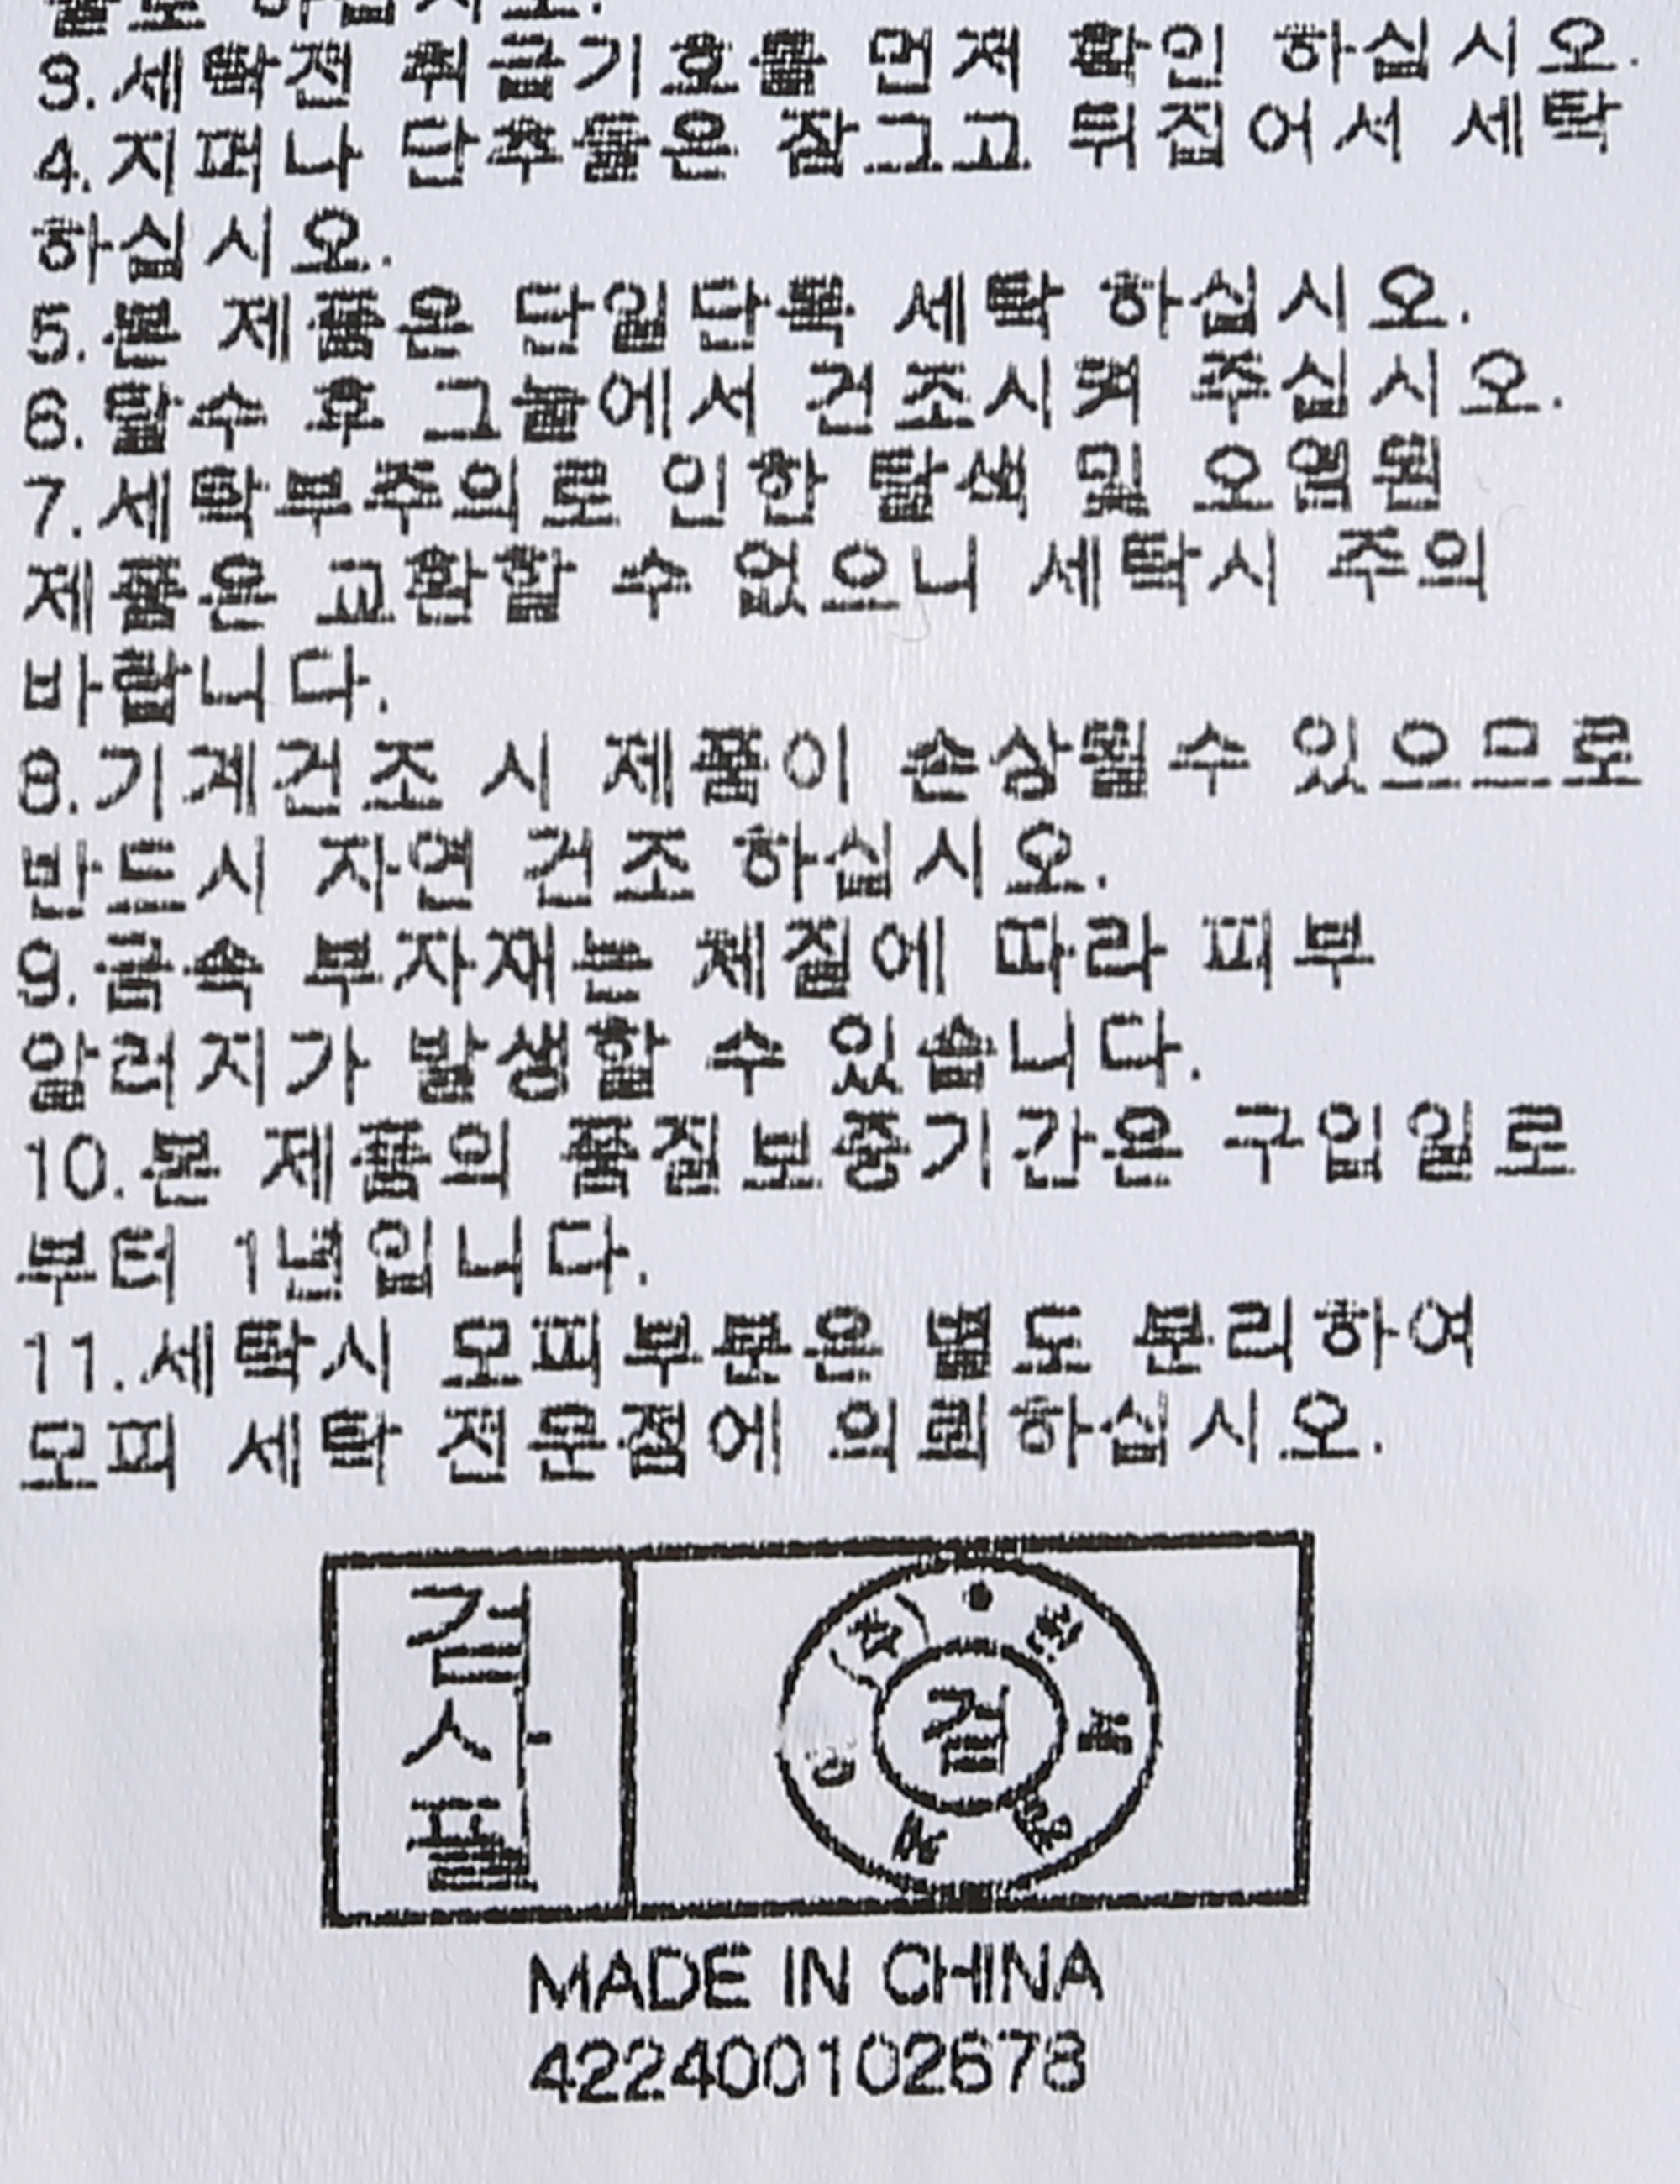 하십시오.
3.세탁전 취급기호를 먼저 확인 하십시오.
4.지퍼나 단추들은 잠그고 뒤집어서 세탁
하십시오.
5.본 제품은 단일단독 세탁 하십시오.
6.탈수 후 그늘에서 건조시켜 주십시오.
7.세탁부주의로 인한 탈색 및 오염된
제품은 교환할 수 없으니 세탁시 주의
바랍니다.
8.기계건조 시 제품이 손상될수 있으므로
반드시 자연 건조 하십시오.
9.금속 부자재는 체질에 따라 피부
알러지가 발생할 수 있습니다.
10.본 제품의 품질보증기간은 구입일로
부터 1년입니다.
11.세탁시 모피부분은 별도 분리하여
모피 세탁 전문점에 의뢰하십시오.
검사필
검
MADE IN CHINA
422400102678